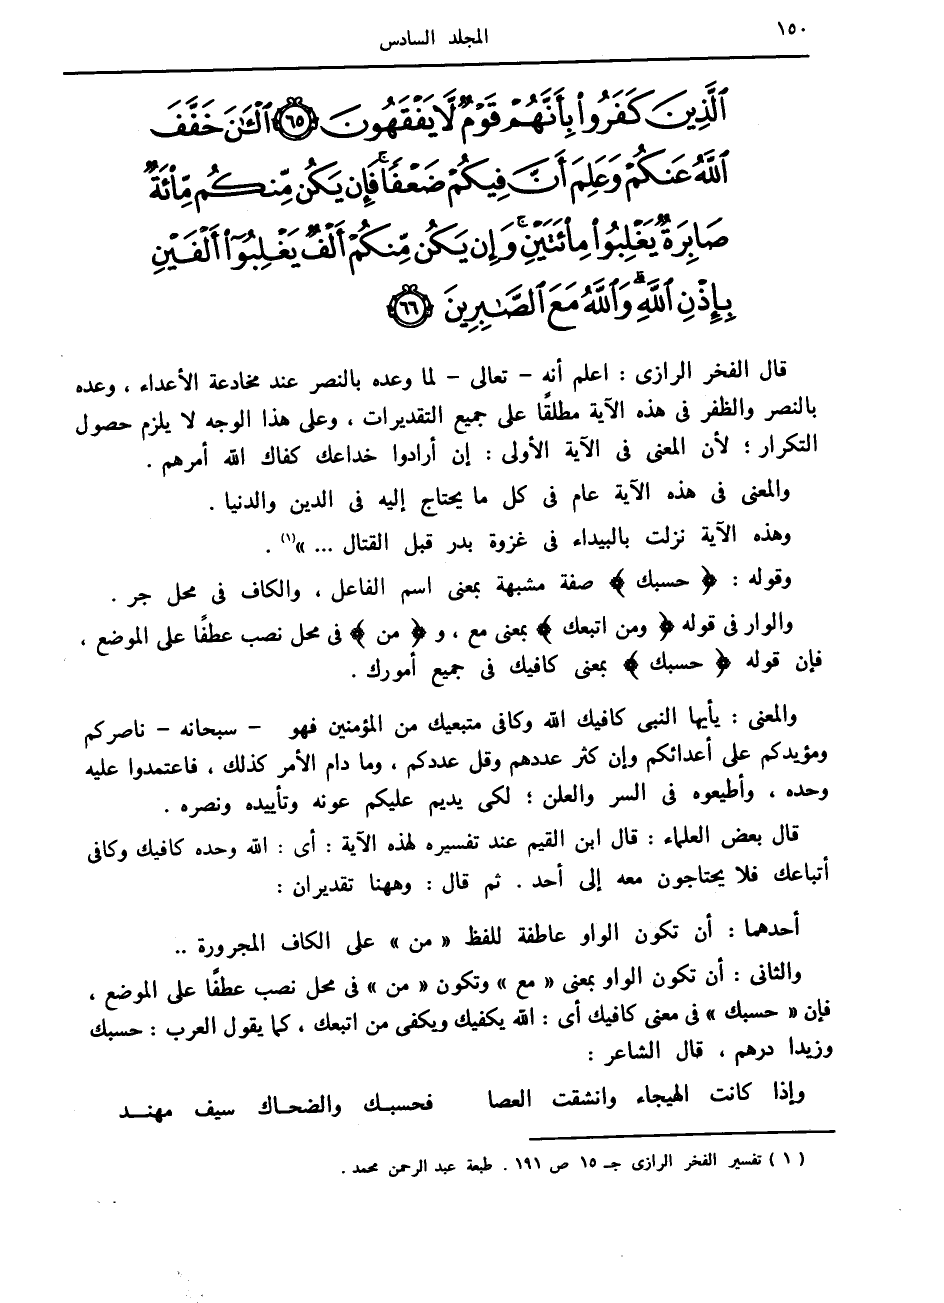 ١٥٠
المجلد السادس
ٱلَّذِينَ كَفَرُوا۟ بِأَنَّهُمْ قَوْمٌ لَّا يَفْقَهُونَ ٦٥ ٱلْـَٰٔنَ خَفَّفَ
ٱللَّهُ عَنكُمْ وَعَلِمَ أَنَّ فِيكُمْ ضَعْفًا ۚ فَإِن يَكُن مِّنكُم مِّا۟ئَةٌ
صَابِرَةٌ يَغْلِبُوا۟ مِا۟ئَتَيْنِ ۚ وَإِن يَكُن مِّنكُمْ أَلْفٌ يَغْلِبُوٓا۟ أَلْفَيْنِ
بِإِذْنِ ٱللَّهِ ۗ وَٱللَّهُ مَعَ ٱلصَّٰبِرِينَ ٦٦
قال الفخر الرازى : اعلم أنه – تعالى – لما وعده بالنصر عند مخادعة الأعداء ، وعده
بالنصر والظفر فى هذه الآية مطلقًا على جميع التقديرات ، وعلى هذا الوجه لا يلزم حصول
التكرار ؛ لأن المعنى فى الآية الأولى : إن أرادوا خداعك كفاك الله أمرهم .
والمعنى فى هذه الآية عام فى كل ما يحتاج إليه فى الدين والدنيا .
وهذه الآية نزلت بالبيداء فى غزوة بدر قبل القتال ... »(١) .
وقوله : ﴿ حسبك ﴾ صفة مشبهة بمعنى اسم الفاعل ، والكاف فى محل جر .
والوار فى قوله ﴿ ومن اتبعك ﴾ بمعنى مع ، و ﴿ من ﴾ فى محل نصب عطفًا على الموضع ،
فإن قوله ﴿ حسبك ﴾ بمعنى كافيك فى جميع أمورك .
والمعنى : يأيها النبى كافيك الله وكافى متبعيك من المؤمنين فهو – سبحانه – ناصركم
ومؤيدكم على أعدائكم وإن كثر عددهم وقل عددكم ، وما دام الأمر كذلك ، فاعتمدوا عليه
وحده ، وأطيعوه فى السر والعلن ؛ لكى يديم عليكم عونه وتأييده ونصره .
قال بعض العلماء : قال ابن القيم عند تفسيره لهذه الآية : أى : الله وحده كافيك وكافى
أتباعك فلا يحتاجون معه إلى أحد . ثم قال : وههنا تقديران :
أحدهما : أن تكون الواو عاطفة للفظ « من » على الكاف المجرورة ..
والثانى : أن تكون الواو بمعنى « مع » وتكون « من » فى محل نصب عطفًا على الموضع ،
فإن « حسبك » فى معنى كافيك أى : الله يكفيك ويكفى من اتبعك ، كما يقول العرب : حسبك
وزيدا درهم ، قال الشاعر :
وإذا كانت الهيجاء وانشقت العصا فحسبـك والضحـاك سيف مهنـد
( ١ ) تفسير الفخر الرازى جـ ١٥ ص ١٩١ . طبعة عبد الرحمن محمد .